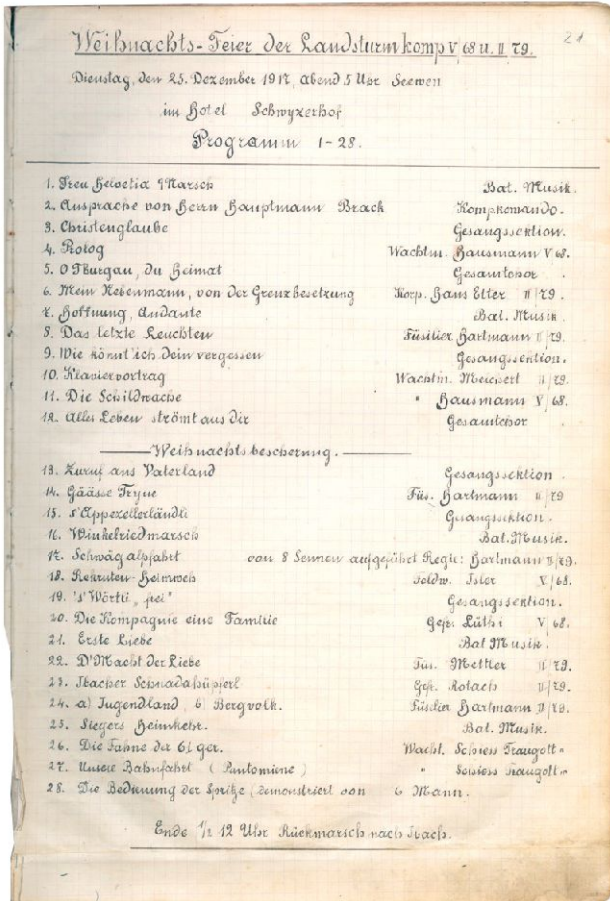 21
Weihnachts-Feier der Landsturmkomp V/68 u. II 79.
Dienstag, den 25. Dezember 1917, abend 5 Uhr Seewen
im Hotel Schwyzerhof
Programm 1-28.
1. Treu Helvetia Marsch Bat. Musik.
2. Ansprache von Herrn Hauptmann Brack Kompkomando.
3. Christenglaube Gesangssektion.
4. Prolog Wachtm. Hausmann V 68.
5. O Thurgau, du Heimat Gesamtchor.
6. Mein Nebenmann, von der Grenzbesetzung Korp. Hans Etter II/79.
7. Hoffnung, Andante Bat. Musik.
8. Das letzte Leuchten Füsilier Hartmann II/79.
9. Wie könnt ich dein vergessen Gesangssektion.
10. Klaviervortrag Wachtm. Meichert II/79.
11. Die Schildwache " Hausmann V/68.
12. Alles Leben strömt aus dir Gesamtchor
Weihnachtsbescherung.
13. Zuruf ans Vaterland Gesangssektion.
14. Gäässe Tryne Füs. Hartmann II/79
15. s'Appezellerländli Gesangssektion.
16. Winkelriedmarsch Bat. Musik.
17. Schwägalpfahrt von 8 Sennen aufgeführt Regie: Hartmann II/79.
18. Rekruten-Heimweh Feldw. Isler V/68.
19. 's' Wörtli „frei" Gesangssektion.
20. Die Kompagnie eine Familie Gefr. Lüthi V/68.
21. Erste Liebe Bat Musik.
22. D'Macht der Liebe Füs. Mettler II/79.
23. Ibacher Schnadahüpferl Gefr. Rotach II/79.
24. a) Jugendland, b Bergvolk. Füsilier Hartmann II/79.
25. Siegers Heimkehr. Bat. Musik.
26. Die Fahne der 61 ger. Wacht. Schiess Traugott "
27. Unsere Bahnfahrt (Pantomine) " Schiess Traugott "
28. Die Bedienung der Spritze (demonstriert von 6 Mann.
Ende 1/2 12 Uhr Rückmarsch nach Ibach.